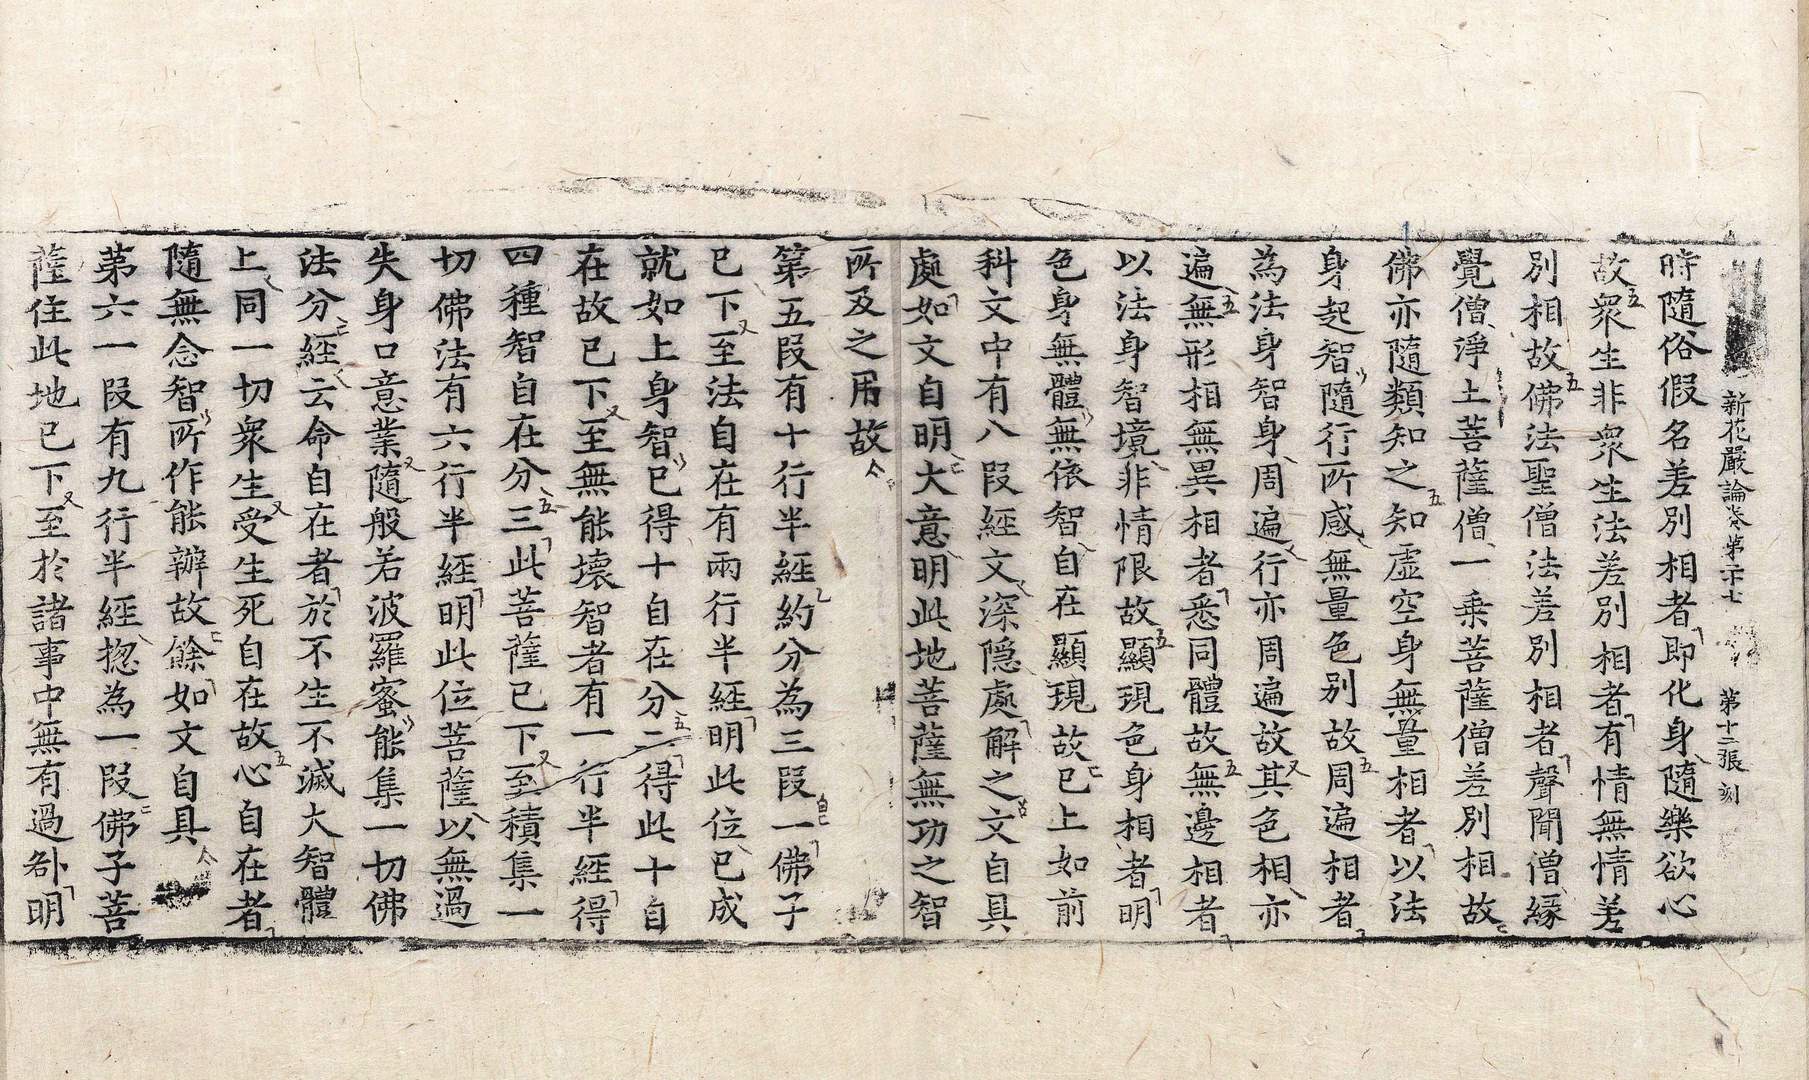 新花嚴論卷第二十七 第十二張 刻
時隨俗假名差別相者即化身隨樂欲心
故衆生非衆生法差別相者有情無情差
別相故佛法聖僧法差別相者聲聞僧緣
覺僧淨土菩薩僧一乘菩薩僧差別相故
佛亦隨類知之知虛空身無量相者以法
身起智隨行所感無量色別故周遍相者
為法身智身周遍行亦周遍故其色相亦
遍無形相無異相者悉同體故無邊相者
以法身智境非情限故顯現色身相者明
色身無體無依智自在顯現故已上如前
科文中有八段經文深隱處解之文自具
處如文自明大意明此地菩薩無功之智
所及之用故
第五段有十行半經約分為三段一佛子
已下至法自在有兩行半經明此位已成
就如上身智已得十自在分二得此十自
在故已下至無能壞智者有一行半經得
四種智自在分三此菩薩已下至積集一
切佛法有六行半經明此位菩薩以無過
失身口意業隨般若波羅蜜能集一切佛
法分經云命自在者於不生不滅大智體
上同一切衆生受生死自在故心自在者
隨無念智所作能辦故餘如文自具
第六一段有九行半經揔為一段佛子菩
薩住此地已下至於諸事中無有過咎明